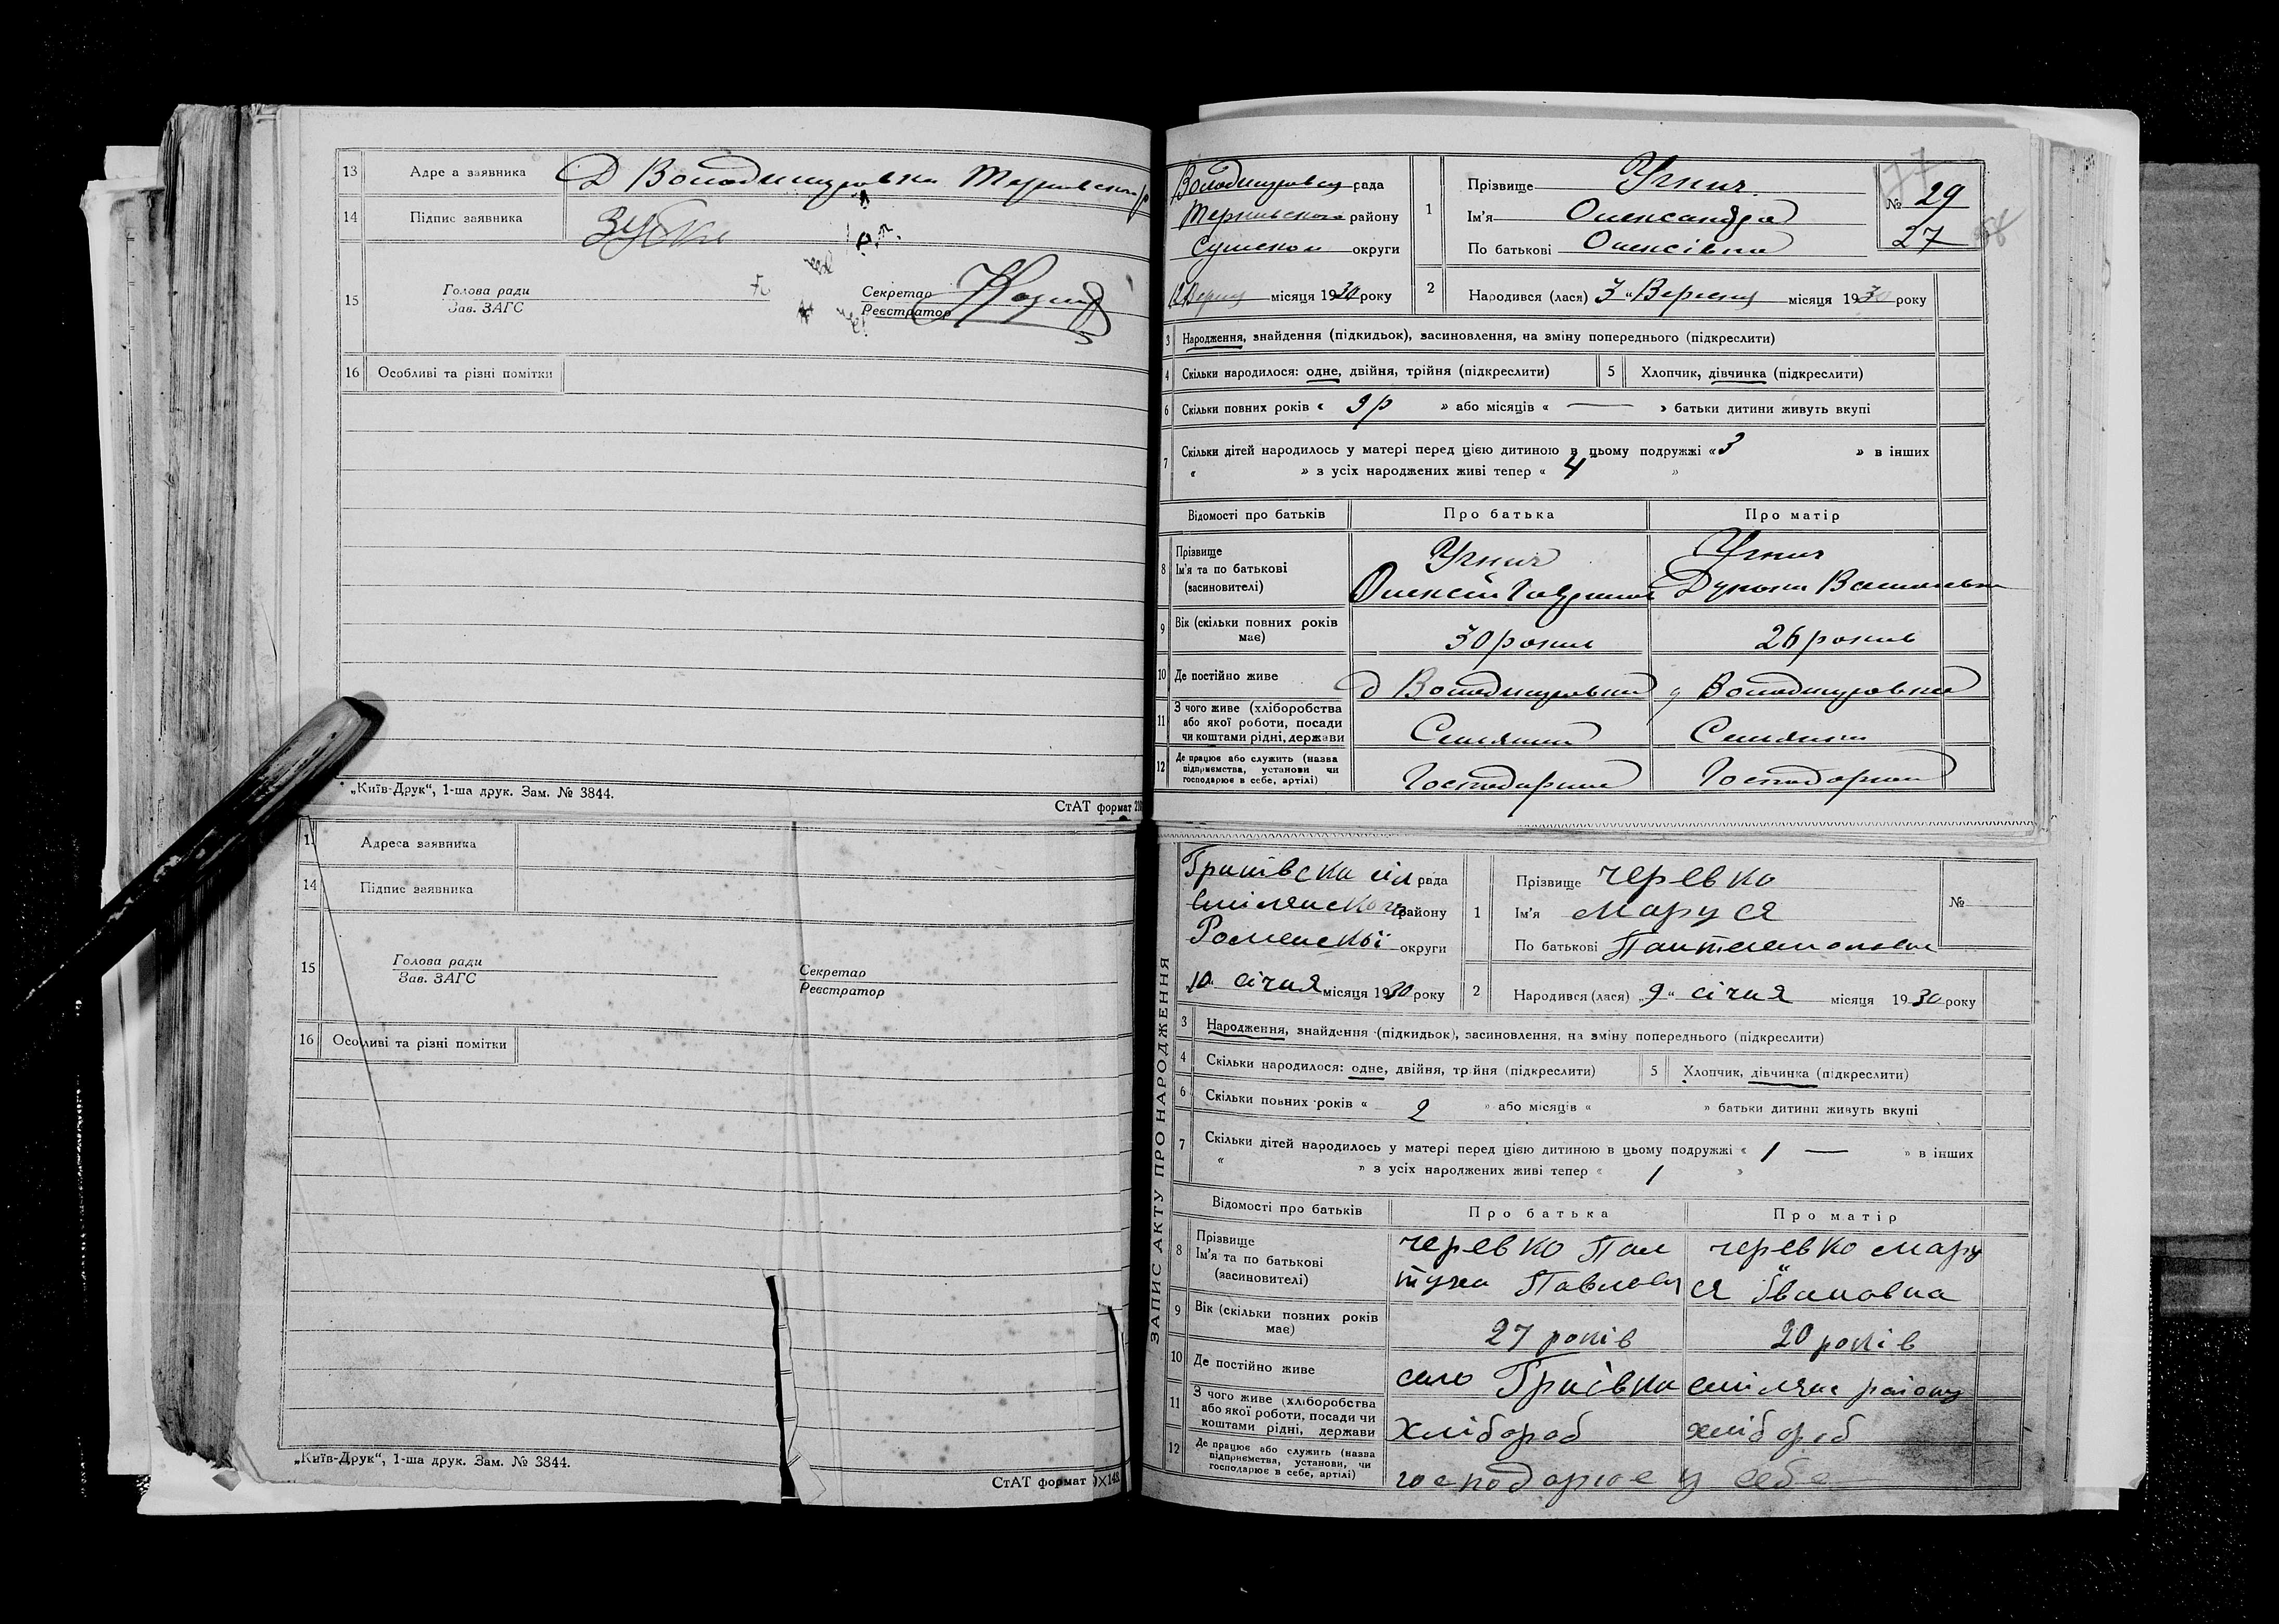 13 Адре а заявника Д Володимировка Тернівськ р
14 Підпис заявника Зубка
15 Голова ради
Зав. ЗАГС
Секретар
Реєстратор
16 Особливі та різні помітки
„Київ-Друк“, 1-ша друк. Зам. № 3844.
СтАТ формат 210
13 Адреса заявника
14 Підпис заявника
15 Голова ради
Зав. ЗАГС
Секретар
Реєстратор
16 Особливі та різні помітки
„Київ-Друк“, 1-ша друк. Зам. № 3844.
СтАТ формат
рада
району
Сумской округи
місяця 1930 року
1 Прізвище Угнич
Ім'я Олександра
По батькові Олексівна
№ 29
27
2 Народився (лася) 3 „Вересня місяця 1930 року
3 Народження, знайдення (підкидьок), засиновлення, на зміну попереднього (підкреслити)
4 Скільки народилося: одне, двійня, трійня (підкреслити) 5 Хлопчик, дівчинка (підкреслити)
6 Скільки повних років « 9р » або місяців « — » батьки дитини живуть вкупі
7 Скільки дітей народилось у матері перед цією дитиною в цьому подружжі « 3 » в інших
« » з усіх народжених живі тепер « 4 »
Відомості про батьків Про батька Про матір
8 Прізвище
Ім'я та по батькові
(засиновителі)
Угнич
Олексій
Угнич
9 Вік (скільки повних років
має)
30 роки 26 роки
10 Де постійно живе д Володимировка д Володимировка
11 З чого живе (хліборобства
або якої роботи, посади
чи коштами рідні, держави
Селянин Селянин
12 Де працює або служить (назва
підприємства, установи чи
господарює в себе, артілі)
ЗАПИС АКТУ ПРО НАРОДЖЕННЯ
сіл рада
району
Роменскої округи
10 січня місяця 1930 року
1 Прізвище Черевко
Ім'я Маруся
По батькові
№
2 Народився (лася) „9“ січня місяця 1930 року
3 Народження, знайдення (підкидьок), засиновлення, на зміну попереднього (підкреслити)
4 Скільки народилося: одне, двійня, трійня (підкреслити) 5 Хлопчик, дівчинка (підкреслити)
6 Скільки повних років « 2 » або місяців « » батьки дитини живуть вкупі
7 Скільки дітей народилось у матері перед цією дитиною в цьому подружжі « 1 — » в інших
« » з усіх народжених живі тепер « 1 »
Відомості про батьків Про батька Про матір
8 Прізвище
Ім'я та по батькові
(засиновителі)
Черевко Пан
Черевко Мару
ся Івановна
9 Вік (скільки повних років
має)
27 років 20 років
10 Де постійно живе село
11 З чого живе (хліборобства
або якої роботи, посади чи
коштами рідні, держави
Хлібороб хлібороб
12 Де працює або служить (назва
підприємства, установи, чи
господарює в себе, артілі)
господарює у себе